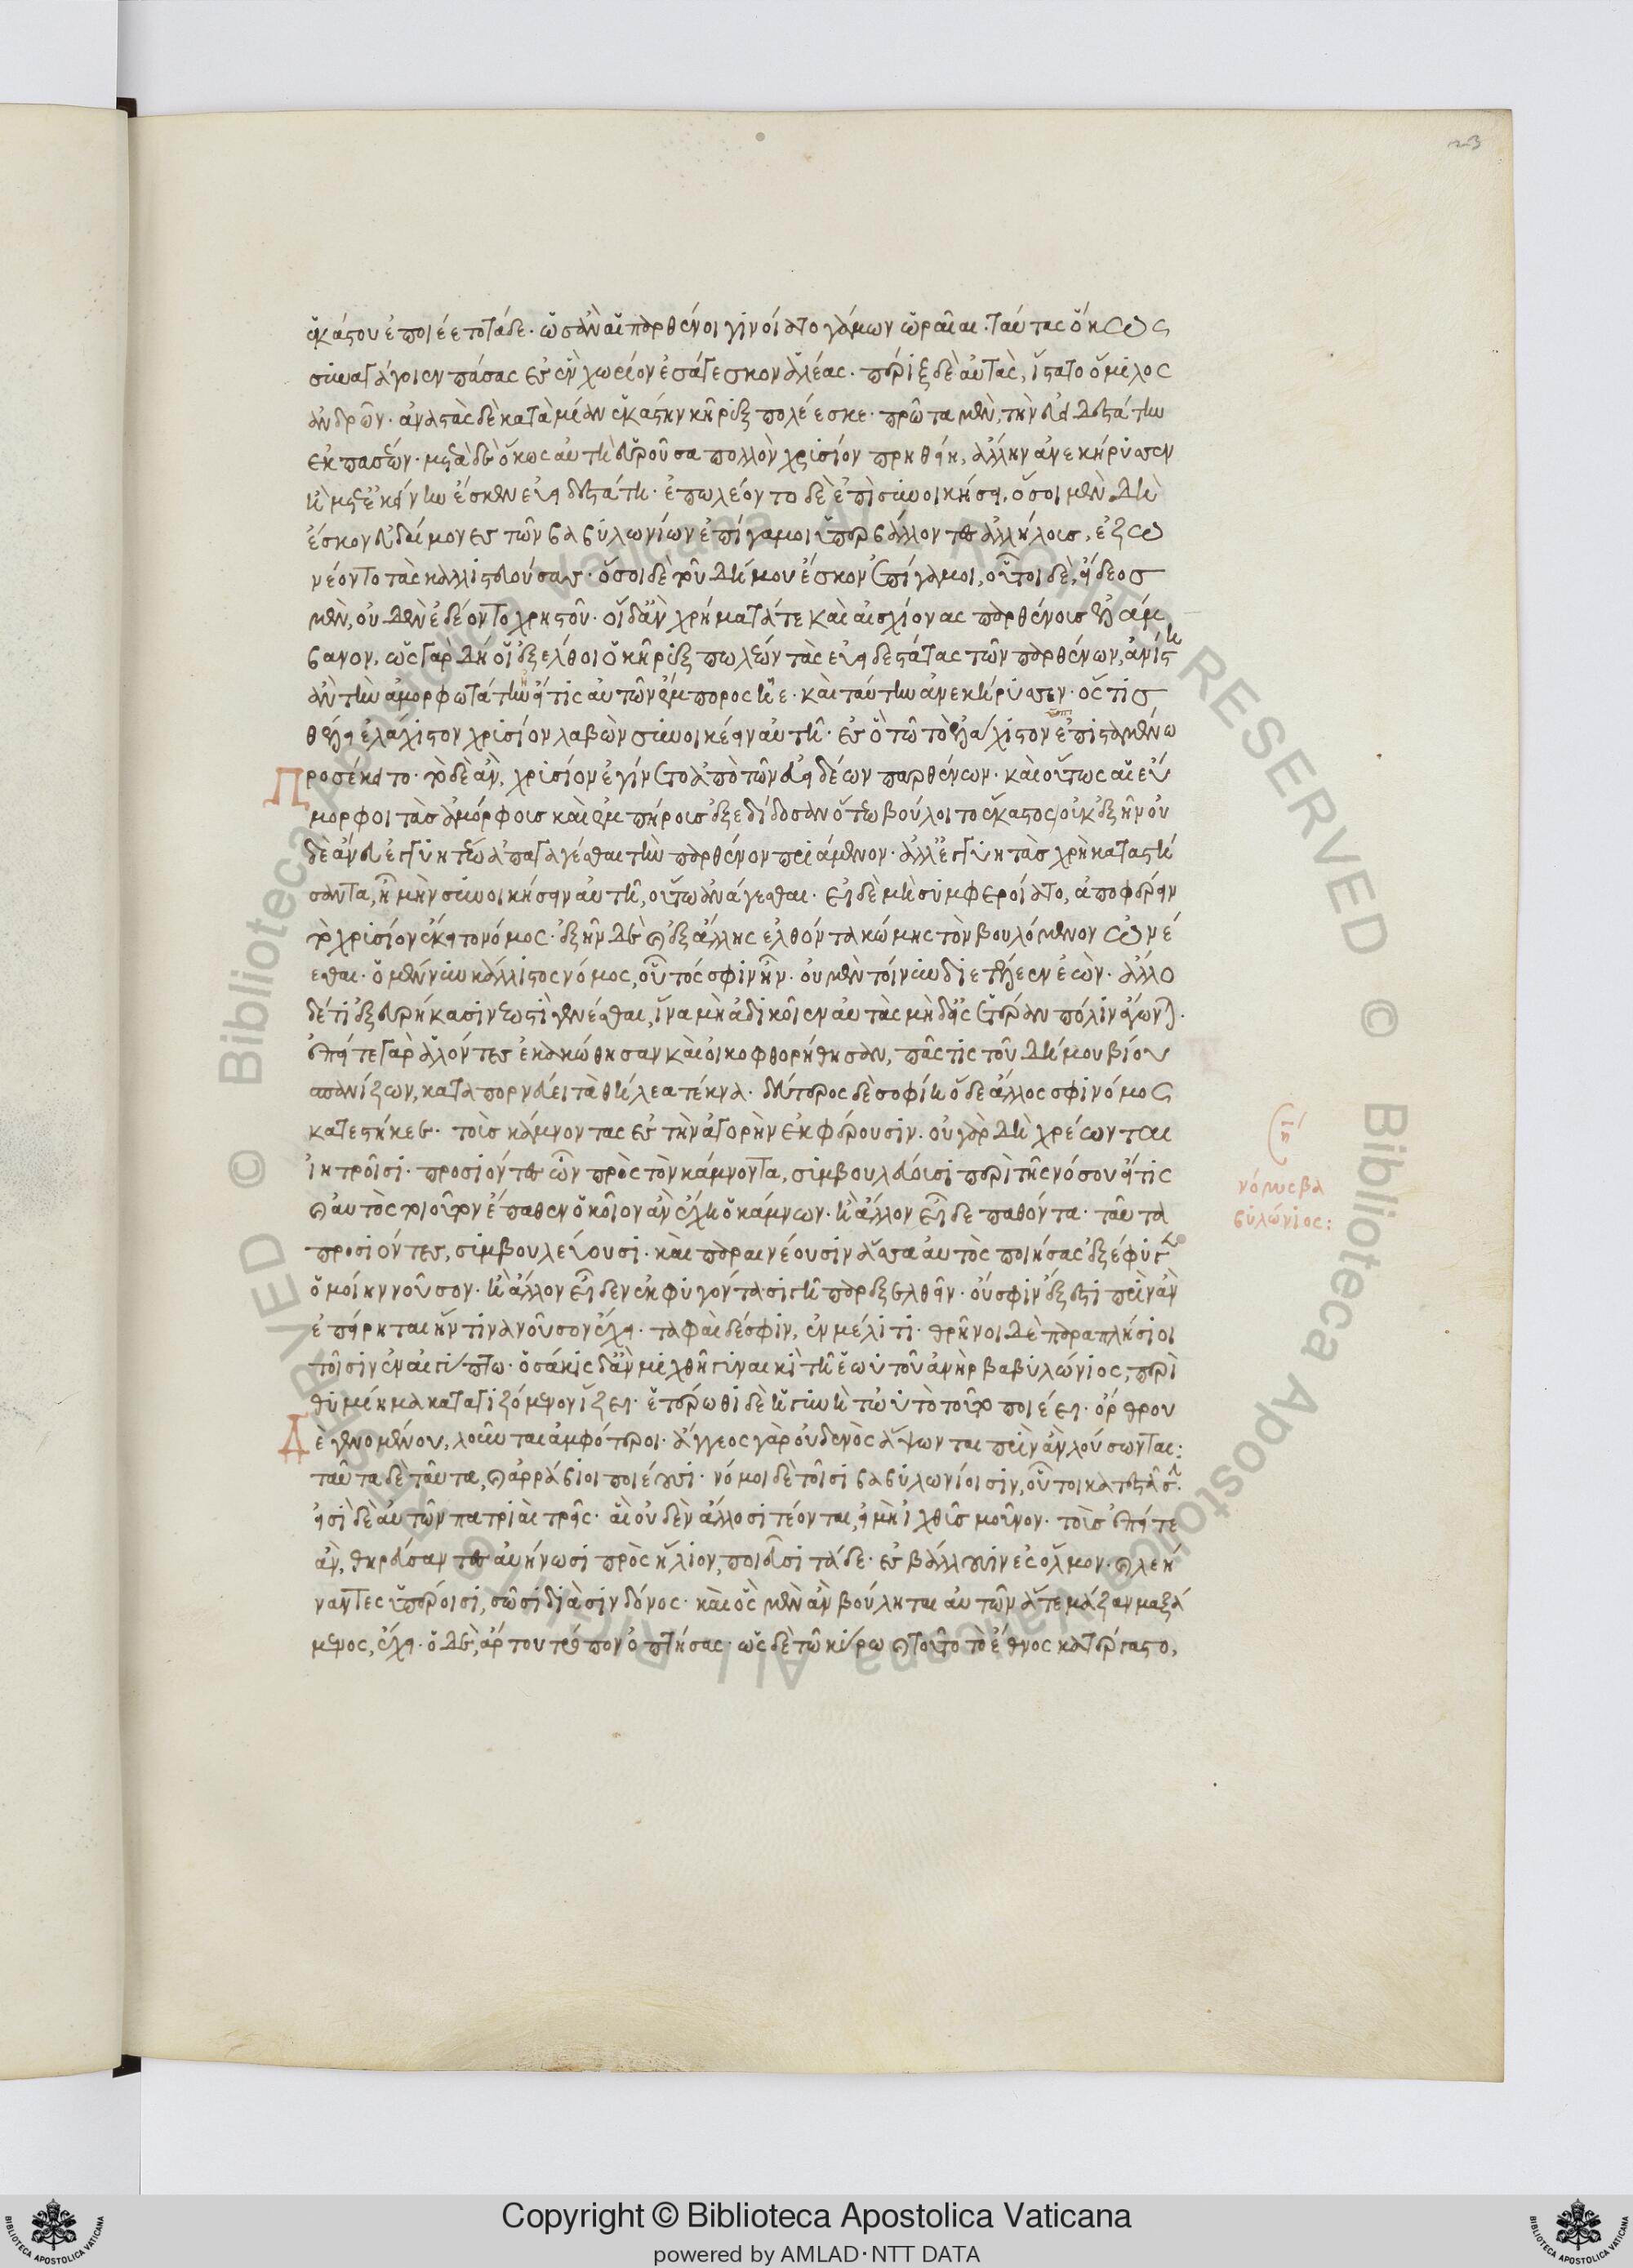 23
ἑκάστου ἐποιέετο τάδε· ὡς ἂν αἱ παρθένοι γινοίατο γάμων ὡραῖαι· ταύτας ὅκως
συναγάγοιεν πάσας ἐς ἓν χωρίον ἐσάγεσκον ἁλέας· πέριξ δὲ αὐτὰς, ἵστατο ὅμιλος
ἀνδρῶν· ἀνιστὰς δὲ κατὰ μίαν ἑκάστην κῆρυξ πωλέεσκε· πρῶτα μὲν, τὴν εὐειδεστάτην
ἐκ πασέων· μετὰ δὲ ὅκως αὐτὴ εὑροῦσα πολλὸν χρυσίον πρηθείη, ἄλλην ἀνεκήρυσσεν
ἣ μετ' ἐκείνην ἔσκεν εὐειδεστάτη· ἐπωλέοντο δὲ ἐπὶ συνοικήσει, ὅσοι μὲν δὴ
ἔσκον εὐδαίμονες τῶν βαβυλωνίων ἐπίγαμοι ὑπερβάλλοντες ἀλλήλοις, ἐξω
νέοντο τὰς καλλιστευούσας· ὅσοι δὲ τοῦ δήμου ἔσκον ἐπίγαμοι, οὗτοι δὲ, εἴδεος
μὲν, οὐδὲν ἐδέοντο χρηστοῦ· οἱ δ' ἂν χρήματά τε καὶ αἰσχίονας παρθένους ἐλάμ
βανον, ὡς γὰρ δὴ οἱ ἐξέλθοι ὁ κῆρυξ πωλέων τὰς εὐειδεστάτας τῶν παρθένων, ἀνίστη
ἂν τὴν ἀμορφωτάτην ἥτις αὐτῶν ἔμπορος ἦε· καὶ ταύτην ἀνεκήρυσσεν· ὅστις
θέλει ἐλάχιστον χρυσίον λαβὼν συνοικέειν αὐτῇ· ἐς ὃ τῷ τὸ ἐλάχιστον ἐπισταμένω
προσέκειτο· τὸ δὲ ἂν, χρυσίον ἐγίνετο ἀπὸ τῶν εὐειδέων παρθένων· καὶ οὕτως αἱ εὔ
μορφοι τὰς ἀμόρφους καὶ ἐμπήρους ἐξεδίδοσαν ὅτεω βούλοιτο ἕκαστος, οὐκ ἐξῆν οὐ
δὲ ἄνευ ἐγγυητέω ἀπαγαγέσθαι τὴν παρθένον πριάμενον· ἀλλ' ἐγγυητὰς χρῆν καταστή
σαντα, ἦ μὴν συνοικήσειν αὐτῇ, οὕτω ἀνάγεσθαι· εἰ δὲ μὴ συμφεροίατο, ἀποφέρειν
τὸ χρυσίον ἔκειτο νόμος· ἐξῆν δὲ καὶ ἐξ ἄλλης ἐλθόντα κώμης τὸν βουλόμενον ὠνέ
εσθαι· ὁ μέν νυν κάλλιστος νόμος, οὗτός σφιν ἦν· οὐ μὲν τοίνυν διετέλεεν ἐών· ἄλλο
δέ τι ἐξευρήκασιν νεωστὶ γενέσθαι, ἵνα μὴ ἀδικοῖεν αὐτὰς μηδ' εἰς ἑτέραν πόλιν ἄγων(ται)·
ἐπεί τε γὰρ ἁλόντες ἐκακώθησαν καὶ οἰκοφθορήθησαν, πᾶς τις τοῦ δήμου βίου
σπανίζων, καταπορνεύει τὰ θήλεα τέκνα· δεύτερος δὲ σοφίη ὅδε ἄλλος σφι νόμος
κατεστήκεε· τοὺς κάμνοντας ἐς τὴν ἀγορὴν ἐκφέρουσιν· οὐ γὰρ δὴ χρέωνται
ἰητροῖσι· προσιόντες ὦν πρὸς τὸν κάμνοντα, συμβουλεύουσι περὶ τῆς νόσου εἴ τις
καὶ αὐτὸς τοιοῦτον ἔπαθεν ὁκοῖον ἂν ἔχῃ ὁ κάμνων· ἢ ἄλλον εἶδε παθόντα· ταῦτα
προσιόντες, συμβουλεύουσι· καὶ παραινέουσιν ἅσσα αὐτὸς ποιήσας ἐξέφυγεν
ὁμοίην νοῦσον· ἢ ἄλλον εἶδεν ἐκφυγόντα· σιγῇ παρεξελθεῖν· οὔ σφιν ἔξεστι πρὶν ἂν
ἐπείρηται ἥντινα νοῦσον ἔχει· ταφαὶ δέ σφιν, ἐν μέλιτι· θρῆνοι δὲ παραπλήσιοι
τοῖσιν ἐν αἰγύπτω· ὁσάκις δ' ἂν μιχθῇ γυναικὶ τῇ ἑωυτοῦ ἀνὴρ βαβυλώνιος, περὶ
θυμίημα καταγιζόμενον ἵζει· ἑτέρωθι δὲ ἡ γυνὴ τὠυτὸ τοῦτο ποιέει· ὄρθρου
Δὲ γενομένου, λοῦνται ἀμφότεροι· ἄγγεος γὰρ οὐδενὸς ἅψονται πρὶν ἂν λούσωνται:
ταῦτα δὲ ταῦτα, καὶ ἀρράβιοι ποιέουσι· νόμοι δὲ τοῖσι βαβυλωνίοισιν, οὗτοι κατεστᾶσι.
εἰσὶ δὲ αὐτῶν πατριαὶ τρεῖς· αἳ οὐδὲν ἄλλο σιτέονται, εἰ μὴ ἰχθῦς μοῦνον· τοὺς ἐπεί τε
ἂν, θηρεύσαντες αὐήνωσι πρὸς ἥλιον, ποιεῦσι τάδε· ἐσβάλλουσιν ἐς ὅλμον· καὶ λεή
ναντες ὑπέροισι, σῶσι διὰ σινδόνος· καὶ ὃς μὲν ἂν βούληται αὐτῶν ἅτε μάζαν μαξά
μενος, ἔχει· ὁ δὲ, ἄρτου τρόπον ὀπτήσας· ὡς δὲ τῷ κύρω καὶ τοῦτο τὸ ἔθνος κατέργαστο,
νόμος βα
βυλώνιος:
Copyright © Biblioteca Apostolica Vaticana
powered by AMLAD·NTT DATA